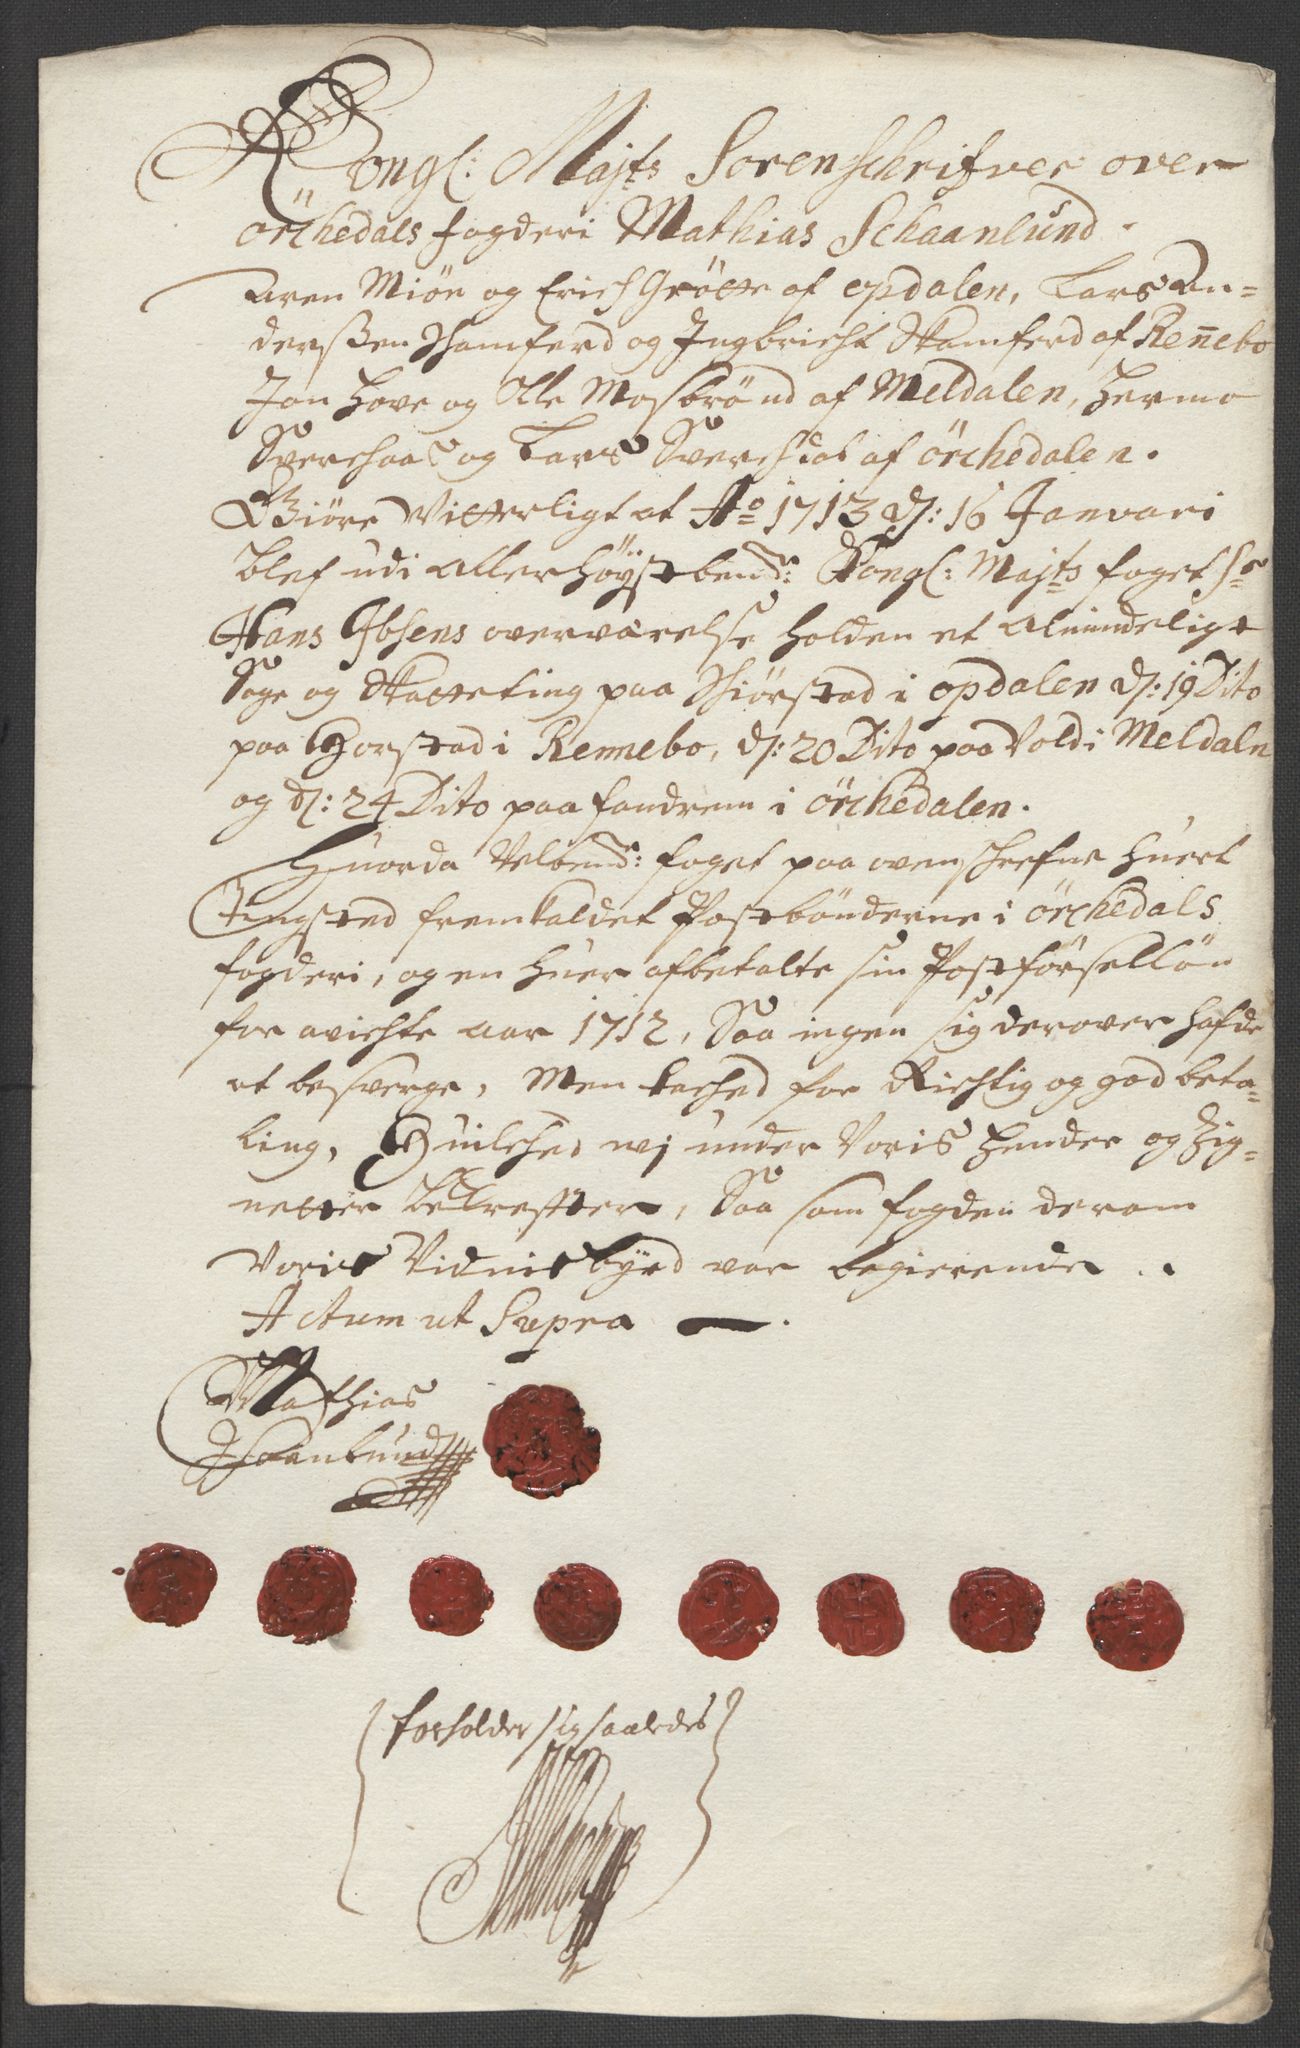 Kongl: Majts Sorenschrifver over
örchedals fogderi Mathias Schaanlund.
Aren Miön og Erich Grötte af opdalen, Lars An=
derssen Skamferd og Ingbricht Skamferd af Rennebo
Jon Hove og Olle Mosbrönd af Meldalen, Hermo
Sverchaas og Lars Sverchdal af örchedalen.
Giöre Vitterligt at Ao 1713 d: 16 Januari
blef udi Allerhöystbemde: Kongl: Majts foget Sr
Hans Ibsens overværelse holden et Almindeligt
Sage og Skatteting paa Schiörstad i opdalen d: 19 Dito
paa Horstad i Rennebo, d: 20 Dito paa Vold i Meldaln
og d: 24 Dito paa fandrem i örchedalen.
Huorda Velbemde: foget paa ovenschrefne huert
Tingsted fremkaldet Postbönderne i örchedals
fogderi, og en huer afbetalte sin Postförsellön
for avichte aar 1712, Saa ingen sig derover hafde
at besverge, Men tached for Richtig og god beta=
ling, Huilched wj under Voris hender og Zig=
netter bekrefter, Saa som fogden derom
Voris Vidnisbyrd var begierende ..
Actum ut Supra —.
Mathias
Schaanlund
forholder sig saaledes